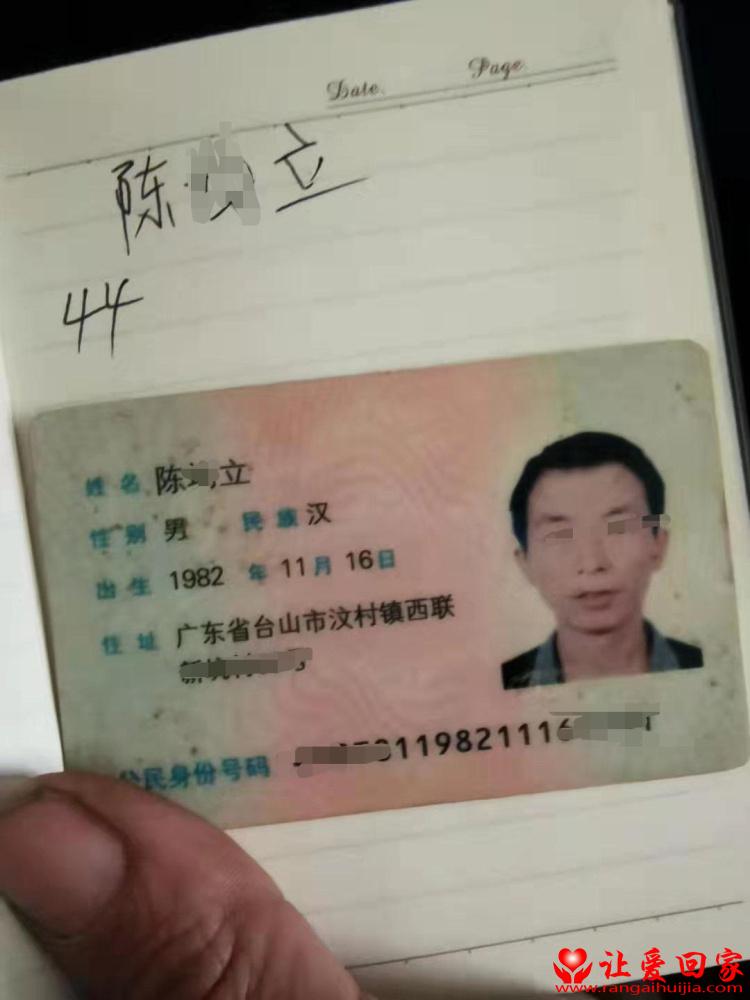 Date. Page.
陈 立
44
姓名 陈 立
性别 男 民族 汉
出生 1982 年 11 月 16 日
住址 广东省台山市汶村镇西联
新坑
公民身份号码 119821116
让爱回家
www.rangaihuijia.com